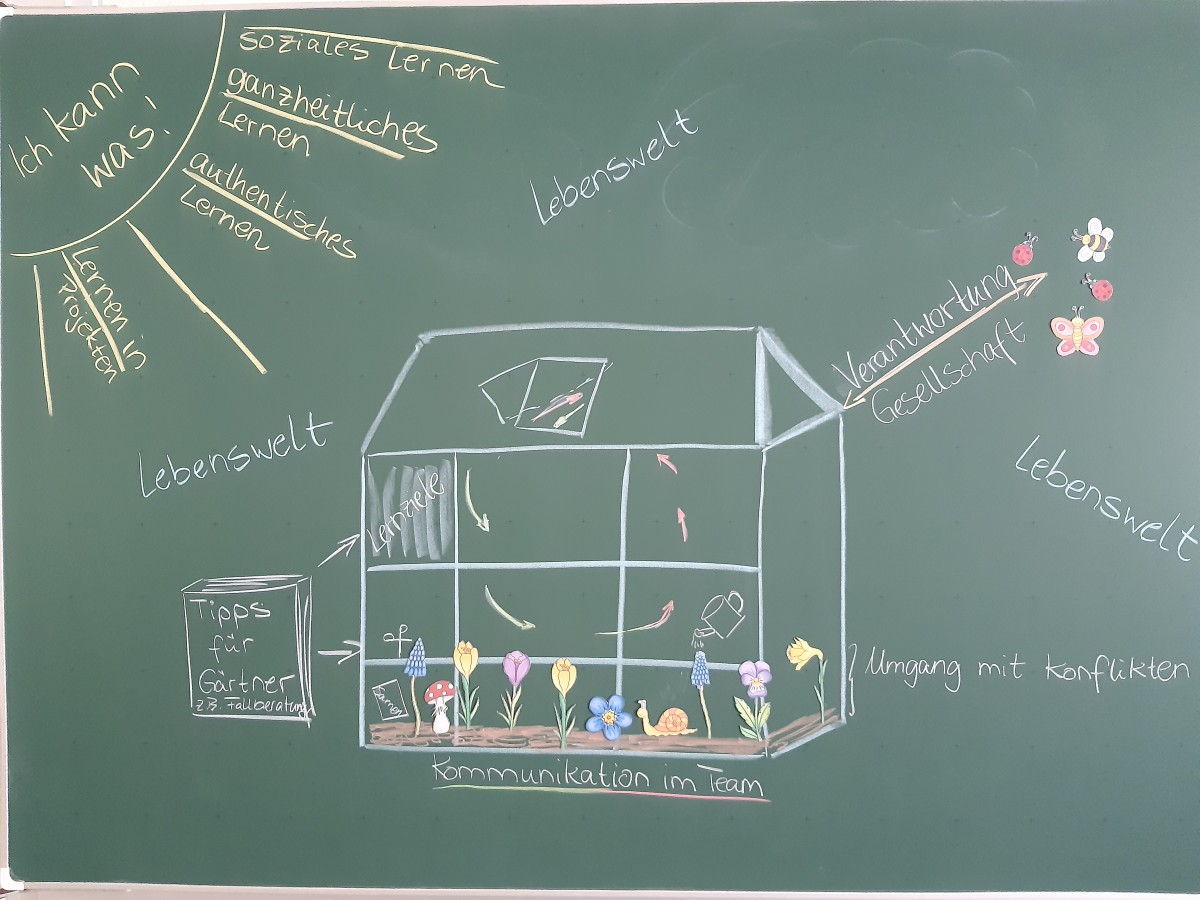 Ich kann
was!
soziales Lernen
ganzheitliches
Lernen
authentisches
Lernen
Lernen in
Projekten
Lebenswelt
Lebenswelt
Lebenswelt
Verantwortung
Gesellschaft
Lernziele
Tipps
für
Gärtner
z.B. Fallberatung
Samen
Umgang mit Konflikten
Kommunikation im Team